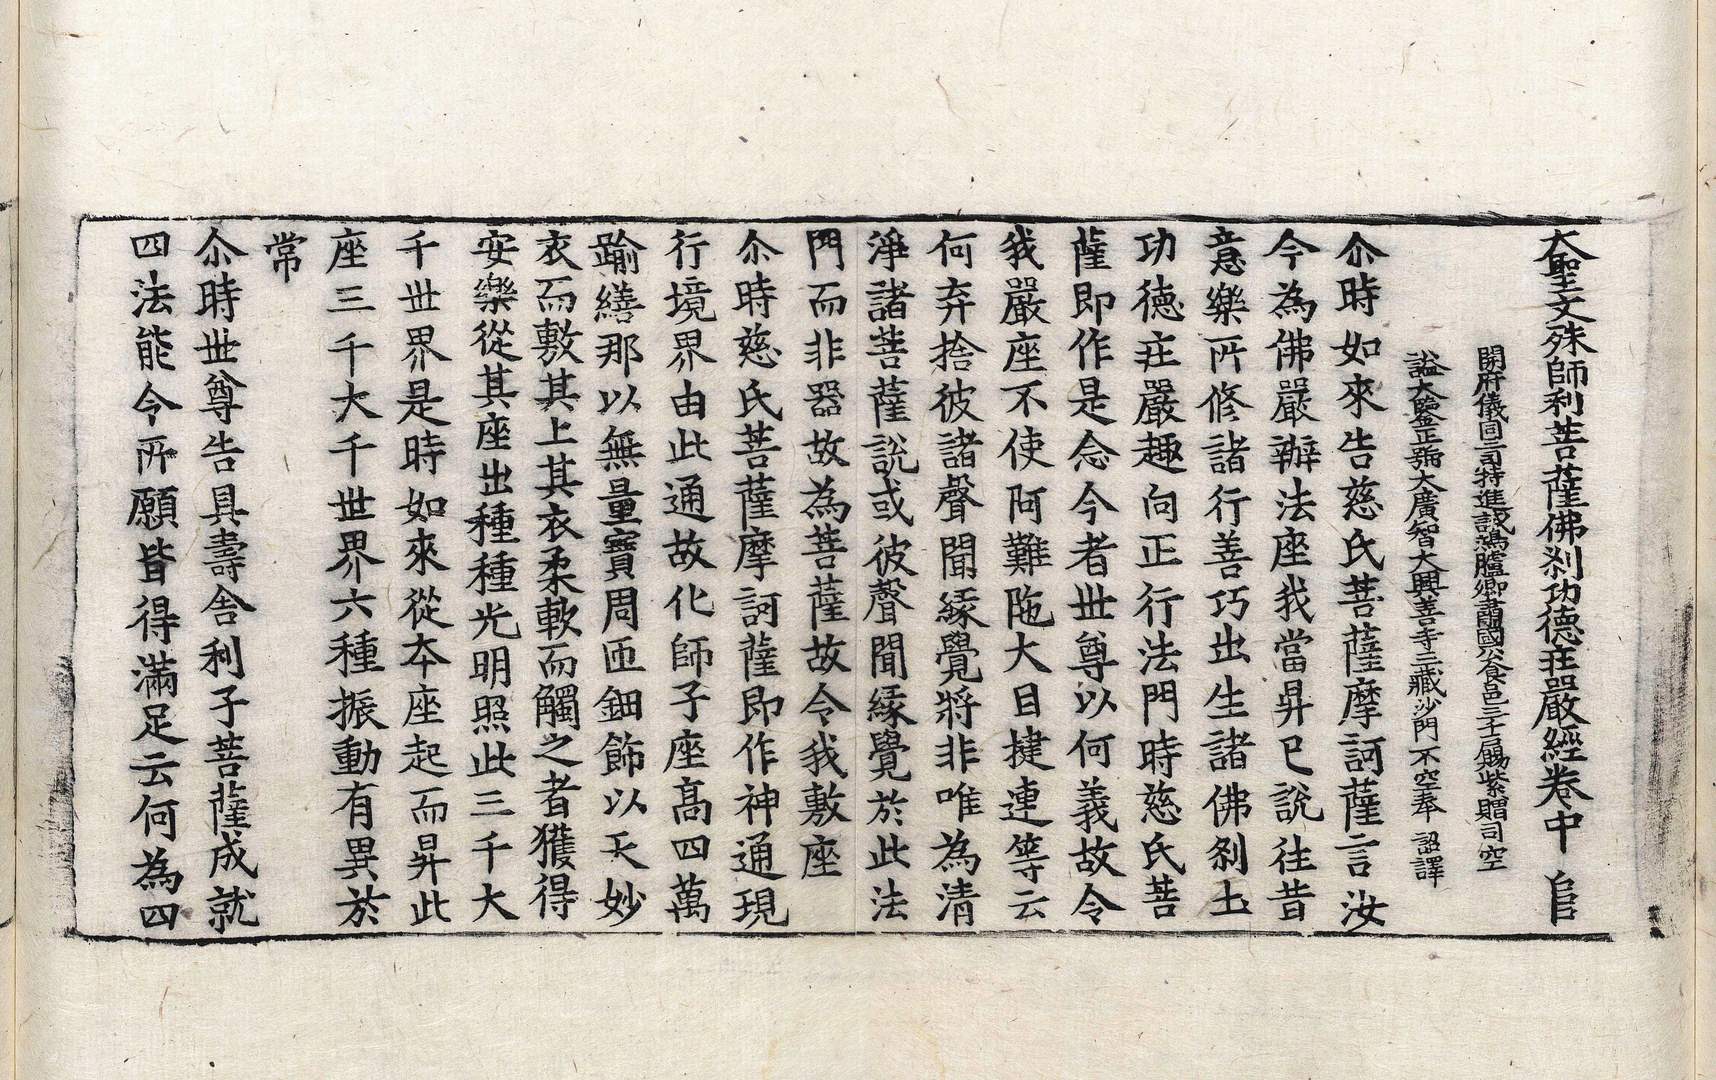 大聖文殊師利菩薩佛刹功德莊嚴經卷中 㠯
開府儀同三司特進試鴻臚卿肅國公食邑三千戶賜紫贈司空
謚大鑒正號大廣智大興善寺三藏沙門不空奉 詔譯
尒時如來告慈氏菩薩摩訶薩言汝
今為佛嚴辦法座我當昇已說往昔
意樂所修諸行善巧出生諸佛刹土
功德莊嚴趣向正行法門時慈氏菩
薩即作是念今者世尊以何義故令
我嚴座不使阿難陁大目揵連等云
何弃捨彼諸聲聞緣覺將非唯為清
淨諸菩薩說或彼聲聞緣覺於此法
門而非器故為菩薩故令我敷座
尒時慈氏菩薩摩訶薩即作神通現
行境界由此通故化師子座高四萬
踰繕那以無量寶周匝鈿飾以天妙
衣而敷其上其衣柔軟而觸之者獲得
安樂從其座出種種光明照此三千大
千世界是時如來從本座起而昇此
座三千大千世界六種振動有異於
常
尒時世尊告具壽舍利子菩薩成就
四法能令所願皆得滿足云何為四